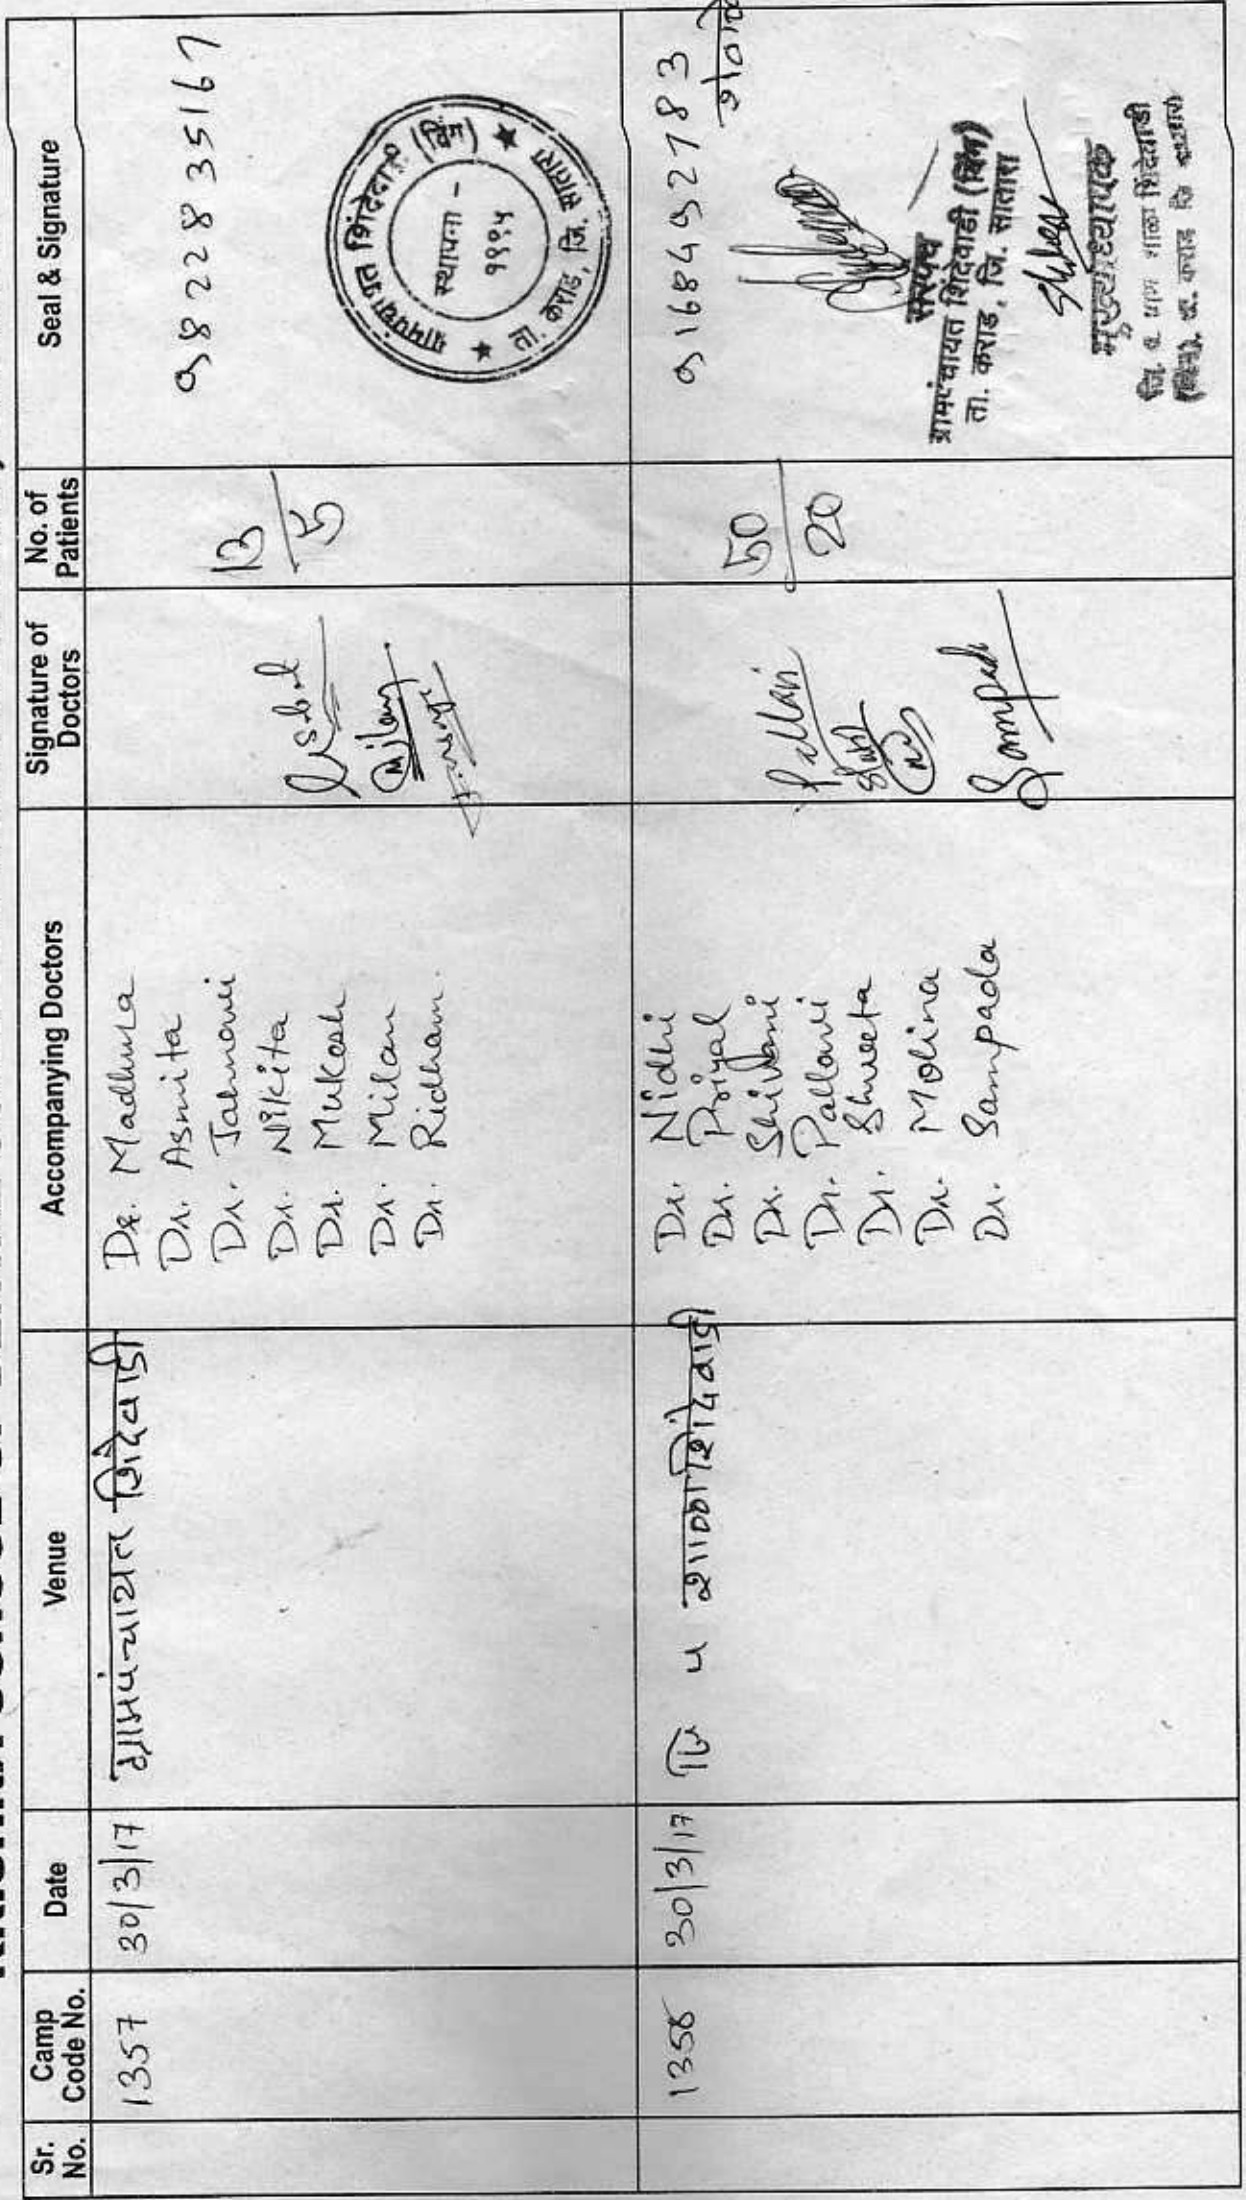 Sr. No.
Camp Code No.
Date
Venue
Accompanying Doctors
Signature of Doctors
No. of Patients
Seal & Signature
1357
30/3/17
ग्रामपंचायत शिंदेवाडी
Dr. Madhura
Dr. Asmita
Dr. Jahnavi
Dr. Nikita
Dr. Mukesh
Dr. Milan
Dr. Ridham.
Milan
13
5
9822835167
ग्रामपंचायत शिंदेवाडी (विंग)
स्थापना -
१९९५
ता. कराड, जि. सातारा
1358
30/3/17
जि प शाळा शिंदेवाडी
Dr. Nidhi
Dr. Priyal
Dr. Shivani
Dr. Pallavi
Dr. Shweta
Dr. Molina
Dr. Sampada
Pallavi
Sampada
50
20
9168492783
सरपंच
ग्रामपंचायत शिंदेवाडी (विंग)
ता. कराड, जि. सातारा
जि. प. प्राथ. शाळा शिंदेवाडी
(विंग), ता. कराड जि सातारा